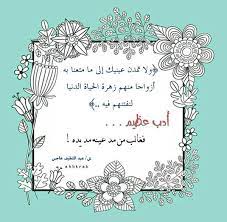 ﴿ولا تمدن عينيك إلى ما متعنا به
أزواجا منهم زهرة الحياة الدنيا
لنفتنهم فيه ..﴾
أدب عظيم . . .
فعاتب من مد عينه مد يده !